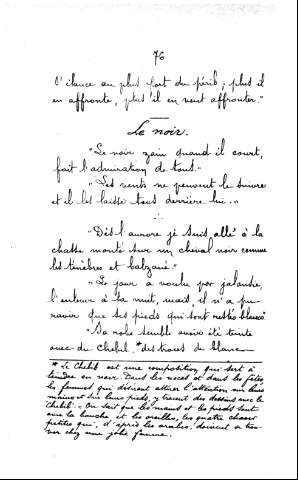 76
s'élance au plus fort du péril; plus il
en affronte, plus il en veut affronter."
Le noir.
"Le noir zain quand il court,
fait l'admiration de tous."
"Les vents ne peuvent le suivre
et il les laisse tous derrière lui..."
"Dès l'aurore je suis allé à la
chasse monté sur un cheval noir comme
les ténèbres et balzané."
"Le jour a voulu par jalousie,
l'enlever à la nuit, mais, il n'a pu
ravoir que ses pieds qui sont restés blancs"
"Sa robe semble avoir été teinte
avec du Chebil. * des traces de blanc
* Le Chebil est une composition qui sert à
teindre en noir. Dans les noces et dans les fêtes
les femmes qui désirent attirer l'attention sur leurs
mains et sur leurs pieds, y tracent des dessins avec le
Chebil. On sait que les mains et les pieds sont
avec la bouche et les oreilles, les quatre choses
petites qui, d'après les arabes, doivent se trou-
ver chez une jolie femme.